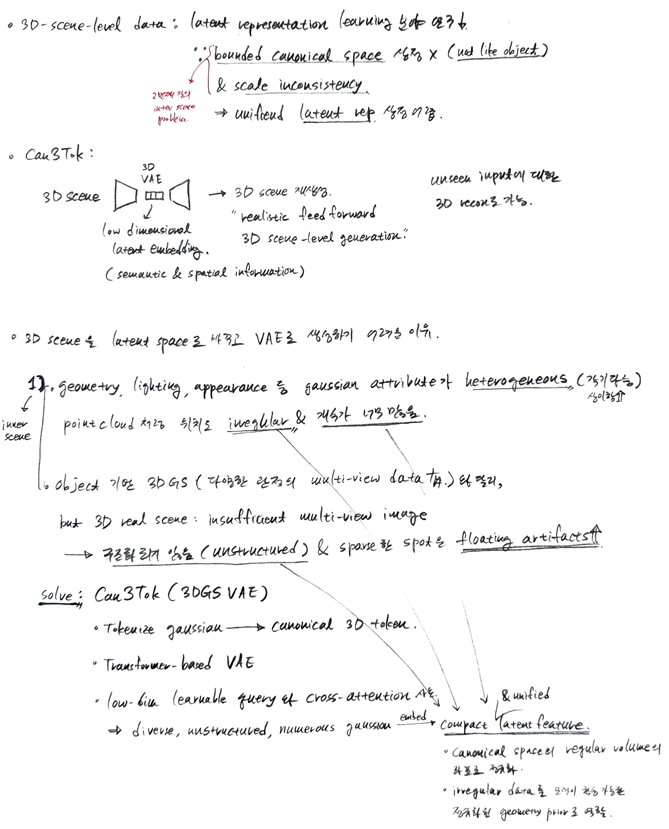 • 3D-scene-level data : latent representation learning 분야 연구↓
∵ bounded canonical space 설정 × (not like object)
& scale inconsistency.
inter scene
problem
⇒ unified latent rep. 설정 어려움.
• Can3Tok :
3D
VAE
3D scene → 3D scene 재생성.
low dimensional
latent embedding.
(semantic & spatial information)
"realistic feed forward
3D scene-level generation."
unseen input에 대한
3D recon도 가능.
• 3D scene을 latent space로 바꾸고 VAE로 생성하기 어려운 이유.
1). geometry, lighting, appearance 등 gaussian attribute가 heterogeneous (각기 다름)
상이함↑
inner
scene
point cloud 처럼 위치도 irregular & 개수가 너무 많음.
object 기반 3DGS (다양한 관점의 multi-view data 有.)와 달리,
but 3D real scene : insufficient multi-view image
→ 구조화 되지 않음 (unstructured) & sparse한 spot은 floating artifacts↑
solve : Can3Tok (3DGS VAE)
• Tokenize gaussian → canonical 3D token.
• Transformer-based VAE
• low-dim learnable query와 cross-attention 사용.
⇒ diverse, unstructured, numerous gaussian embed → compact latent feature.
& unified
• Canonical space의 regular volume의
좌표로 정규화.
• irregular data를 모델이 학습가능한
정규화된 geometry prior로 역할.